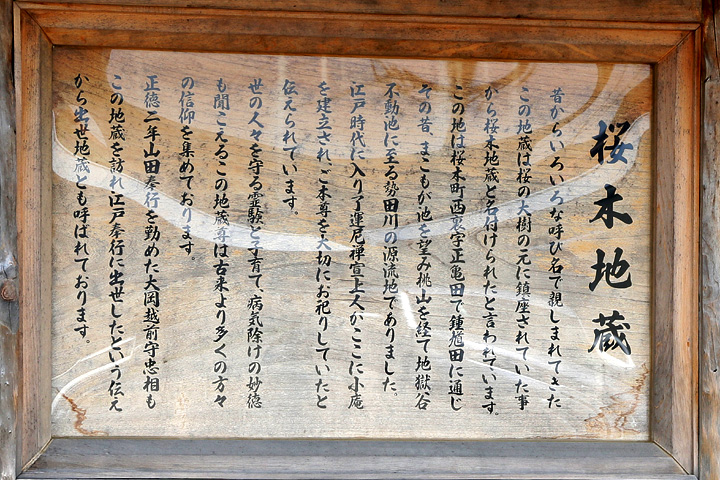 桜木地蔵
昔からいろいろな呼び名で親しまれてきた
この地蔵は桜の大樹の元に鎮座されていた事
から桜木地蔵と名付けられたと言われています。
この地は桜木町西裏字正亀田で鍾馗田に通じ
その昔、まこもが池を望み桃山を経て地獄谷
不動池に至る勢田川の源流地でありました。
江戸時代に入り了運尼禅宣上人がここに小庵
を建立されご本尊を大切にお祀りしていたと
伝えられています。
世の人々を守る霊験と子育て、病気除けの妙徳
も聞こえるこの地蔵尊は古来より多くの方々
の信仰を集めております
正徳二年山田奉行を勤めた大岡越前守忠相も
この地蔵を訪れ江戸奉行に出世したという伝え
から出世地蔵とも呼ばれております。